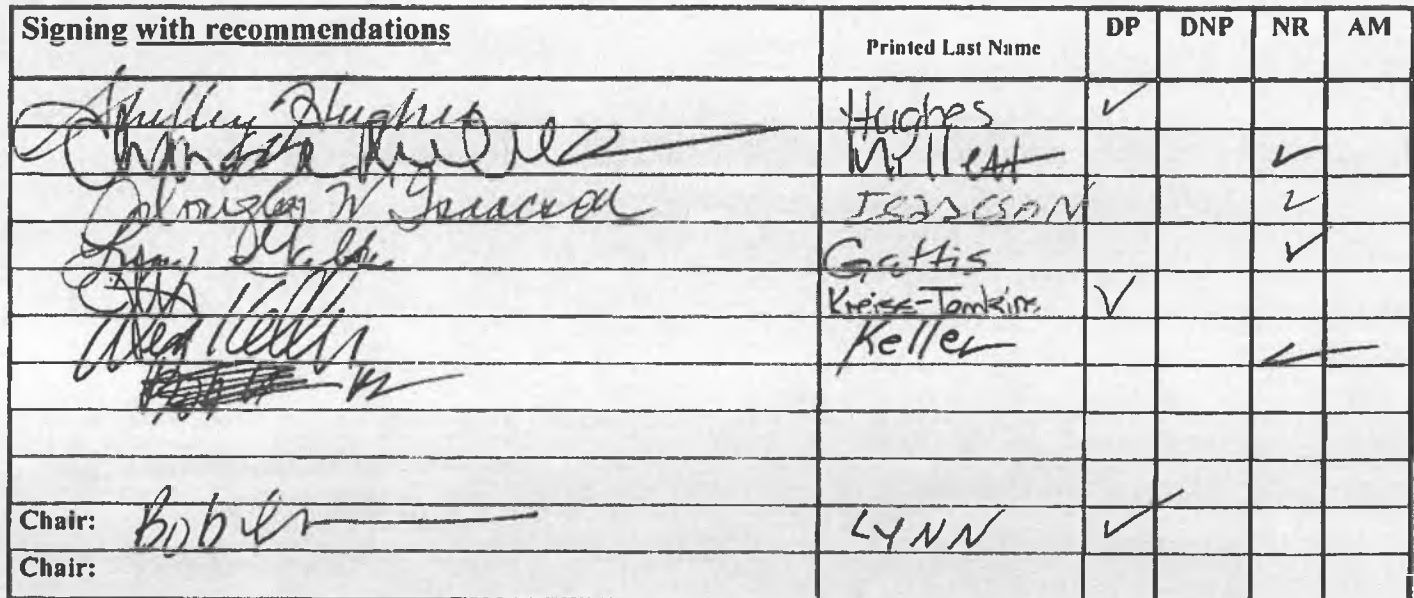 Signing with recommendations Printed Last Name DP DNP NR AM
Shelley Hughes Hughes ✓
Millett ✓
Douglas W Isaacson Isaacson ✓
Lynn Gattis Gattis ✓
Kreiss-Tomkins ✓
Wes Keller Keller ✓
Chair: Bob Lynn LYNN ✓
Chair: